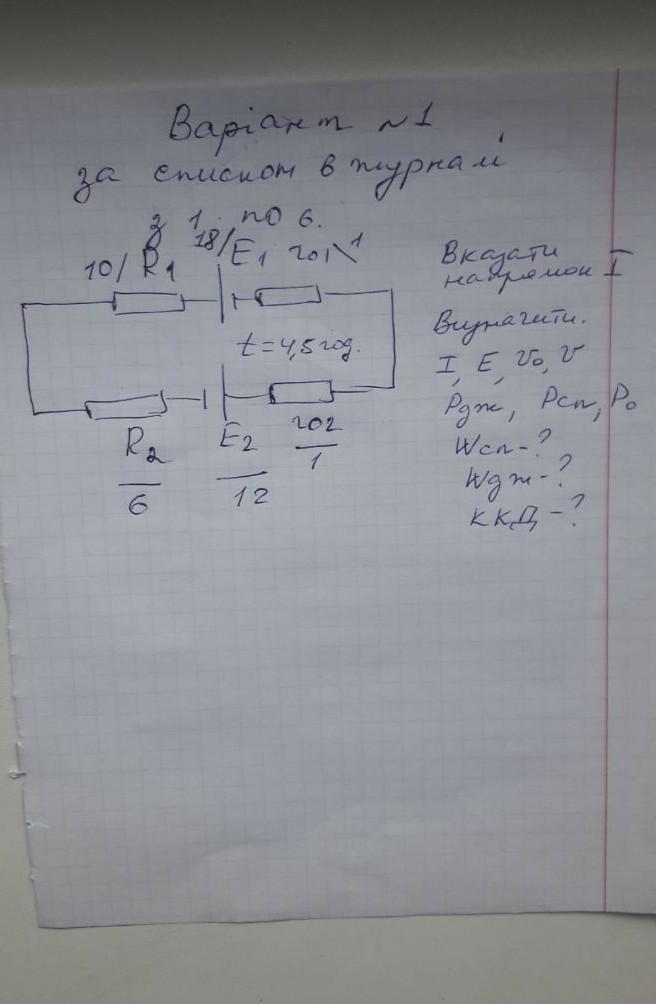 Варіант №1
за списком в журналі
з 1 по 6.
10/ R1 18/ E1 r01 \1
t = 4,5 год.
R2 E2 r02
6 12 1
Вказати
напрямок I
Визначити.
I, E, U0, U
Pдж, Pсп, P0
Wсп-?
Wдж-?
ККД-?